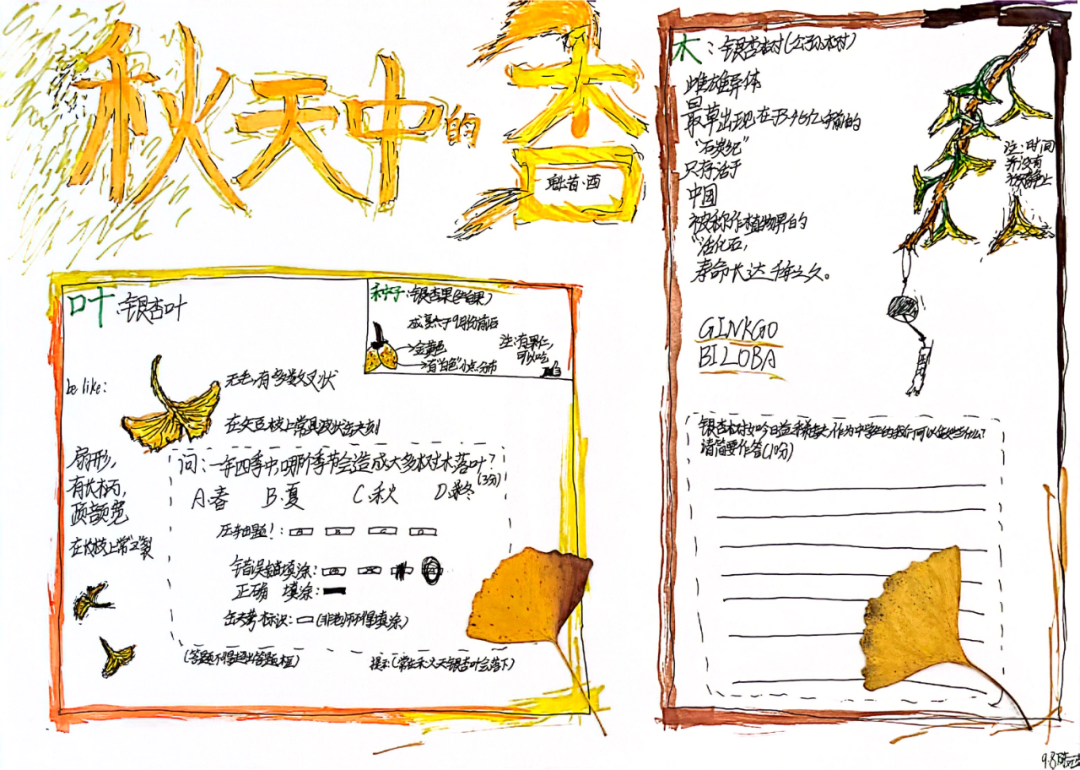 秋天中的杏
叶:银杏叶
种子:银杏果(白果)
成熟于9月份前后
金黄色
有"白色"小点分布
注:有果仁,
可以吃
be like:
无毛,有多数叉状
在短枝上常具波状缺刻
扇形,
有长柄,
顶部宽
在长枝上常2裂
问:一年四季中,哪个季节会造成大多树木落叶?
(3分)
A.春 B.夏 C.秋 D.冬
压轴题!: A B C D
错误填涂:
正确 填涂:
缺考标识: (非老师不得填涂)
(答题不得超出答题框)
提示(常在秋天银杏叶会落下)
木:银杏树(公孙树)
雌雄异体
最早出现在于3.45亿年前的
"石炭纪"
只存活于
中国
被称作植物界的
"活化石,
寿命长达千年之久。
注:时间
并没有
被静止
GINKGO
BILOBA
银杏树如今日益稀缺,作为中学生的我们可以做些什么?
请简要作答(10分)